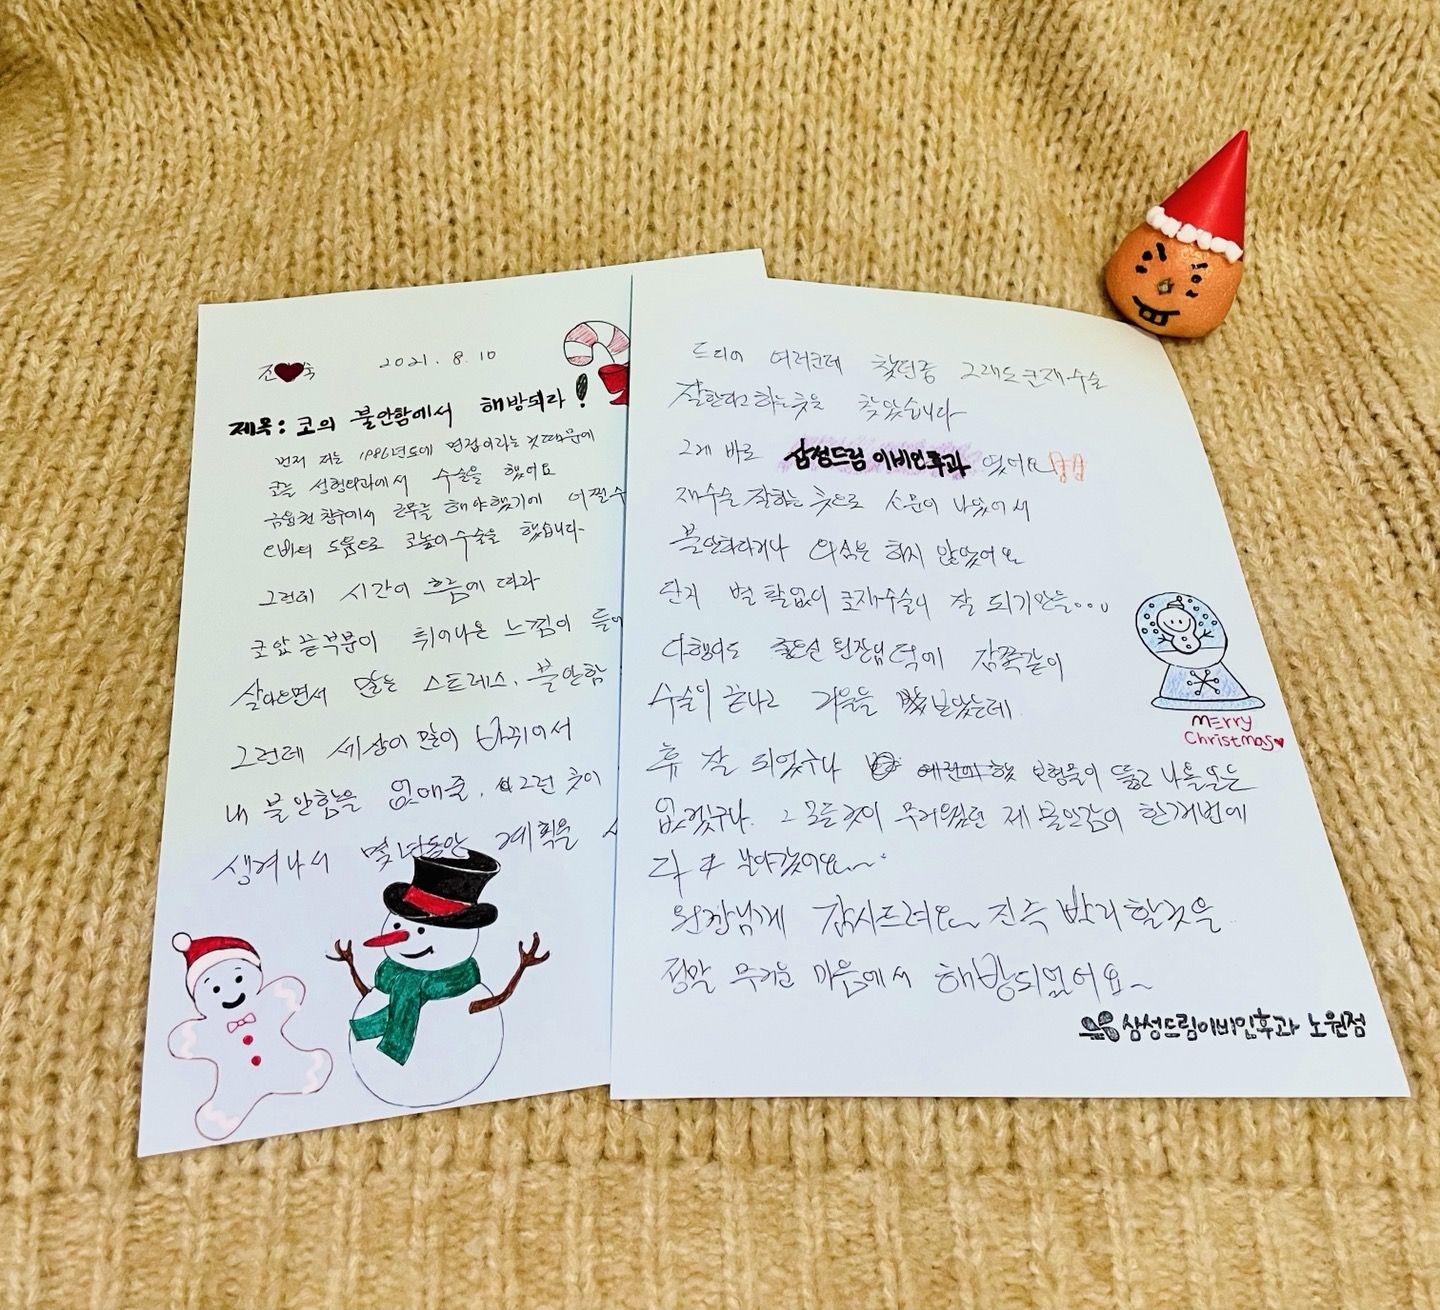 진♥숙 2021. 8. 10
제목: 코의 불안함에서 해방되라!
먼저 저는 1986년도에 면접이라는 것 때문에
코를 성형외과에서 수술을 했어요
근무를 해야했기에 어쩔수
도움으로 코높이수술을 했습니다
그런데 시간이 흐름에 따라
코앞 끝부분이 튀어나온 느낌이 들어
살아오면서 많은 스트레스, 불안함
그런데 세상이 많이 바뀌어서
내 불안함을 없애줄, 그런 곳이
생겨나서 몇년동안 계획을
드디어 여러군데 찾던중 그래도 코재수술
잘한다고 하는곳을 찾았습니다
그게 바로 삼성드림이비인후과 였어요
재수술 잘하는 곳으로 소문이 나있어서
불안하다거나 의심은 하지 않았어요
단지 별 탈없이 코재수술이 잘 되기만을...
다행이도 좋으신 원장님 덕에 감쪽같이
수술이 끝나고 거울을 보았는데.
휴 잘 되었구나 보형물이 뚫고 나올일은
없겠구나. 그 모든것이 무거웠던 제 불안감이 한꺼번에
다 날아갔어요~
원장님께 감사드려요~ 진즉 밖리할것을
정말 무거운 마음에서 해방되었어요~
삼성드림이비인후과 노원점
Merry
Christmas♥